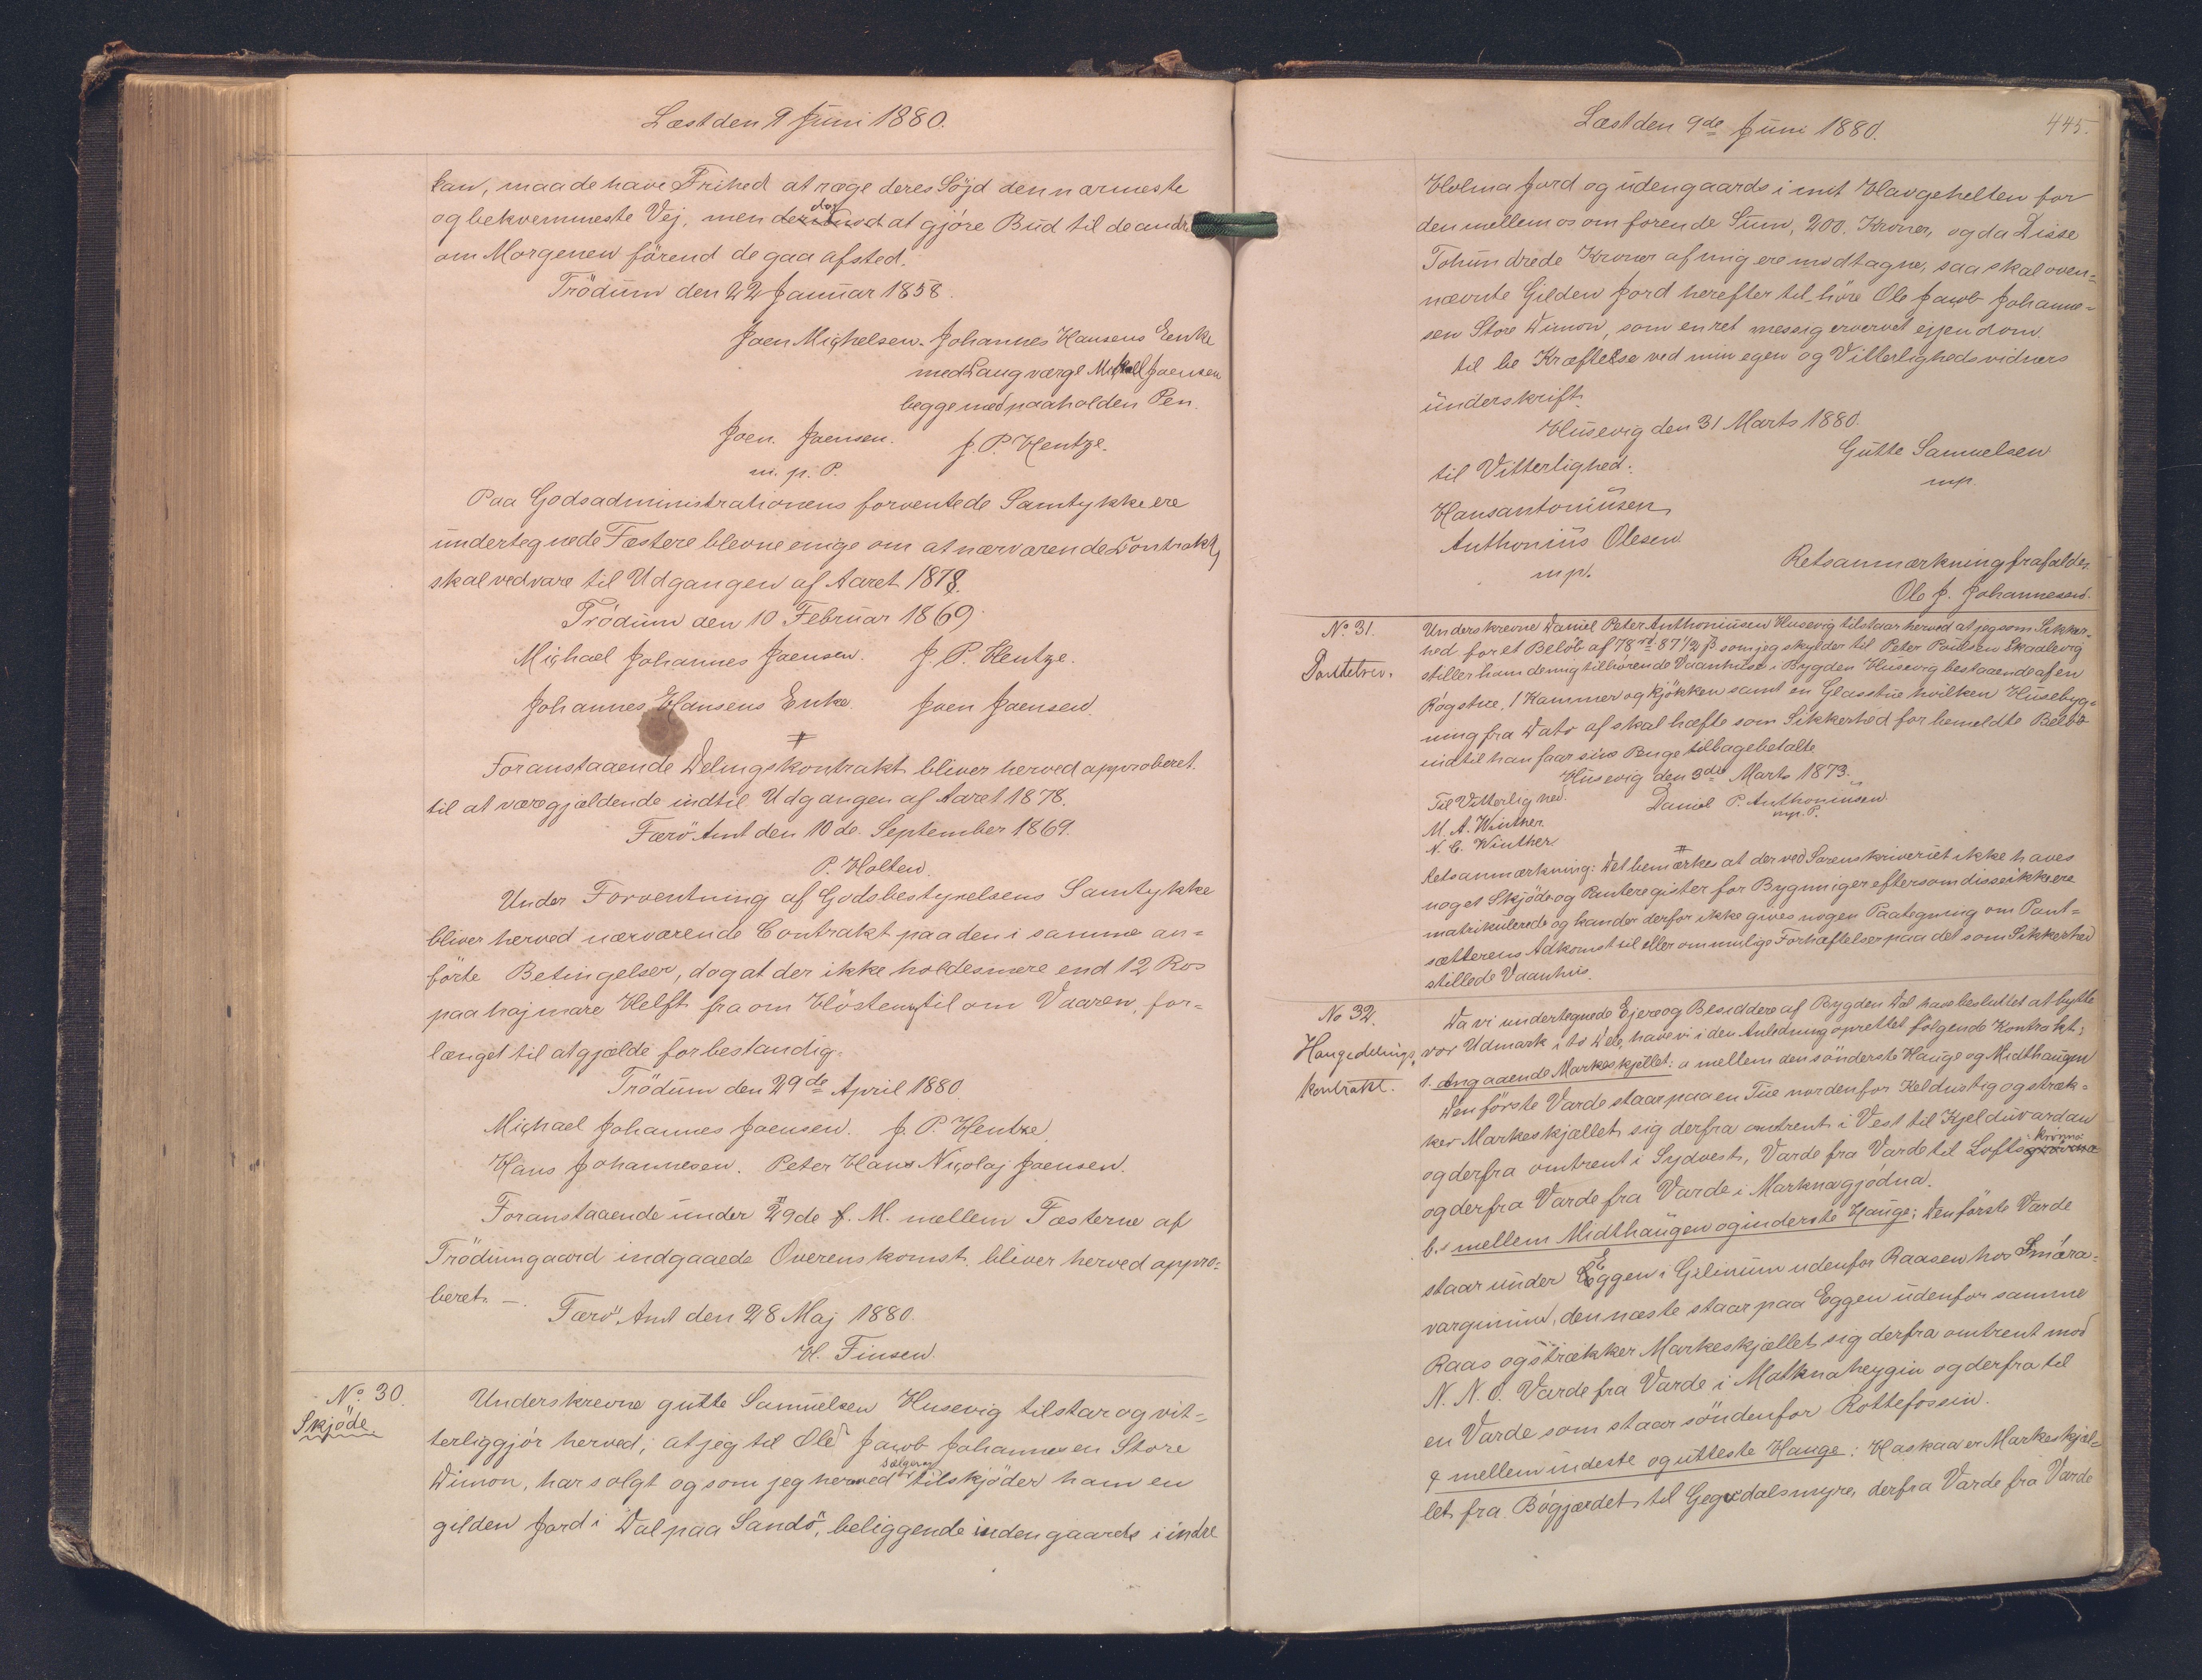 Læst den 9 Juni 1880.
kan, maa de have Frihed at ræge deres Söjd den nærmeste
og bekvemmeste Vej, men dog at gjöre Bud til de andre
om Morgenen förend de gaa afsted.
Trödum den 22 Januar 1858.
Joen Michelsen. Johannes Hansens Enke
med Laugværge Mikkel Joensen
begge med paaholden Pen.
Joen Joensen. J. P. Hentze.
m. p. P.
Paa Godsadministrationens forventede Samtykke ere
undertegnede Fæstere blevne enige om at nærværende Contrakt,
skal vedvare til Udgangen af Aaret 1878.
Trödum den 10 Februar 1869.
Michael Johannes Joensen. J. P. Hentze.
Johannes Hansens Enke. Joen Joensen.
Foranstaaende Delingskontrakt bliver herved approberet
til at være gjældende indtil Udgangen af Aaret 1878.
Færö Amt den 10de September 1869.
P. Holten.
Under Forventning af Godsbestyrelsens Samtykke
bliver herved nærværende Contrakt paa den i samme an=
förte Betingelser, dog at der ikke holdes mere end 12 Ros
paa hajmare Helft fra om Hösten til om Vaaren, for=
længet til at gjælde for bestandig.
Trödum den 29de April 1880.
Michael Johannes Joensen. J. P. Hentze.
Hans Johannesen. Peter Hans Nicolaj Joensen.
Foranstaaende under 29de f. M. mellem Fæsterne af
Trödumgaard indgaaede Overenskomst bliver herved appro=
beret. –.
Færö Amt den 28 Maj 1880.
H. Finsen.
No. 30.
Skjöde.
Underskrevne gutte Samuelsen Husevig tilstar og vit=
terliggjör herved, at jeg til Ole Jacob Johannesen Store
Dimon, har solgt og som jeg herved sælger og tilskjöder ham en
gilden Jord i Dal paa Sandö, beliggende indengaards i indre
Læst den 9de Juni 1880.
445.
Holma Jord og udengaards i mit Havgehelten for
den mellem os omforende Sum, 200. Kroner, og da Disse
Tohundrede Kroner af mig ere modtagne, saa skal oven=
nævnte Gilden Jord herefter til höre Ole Jacob Johanne=
sen Store Dimon, som en ret messig ervervet ejendom.
til be Kræftelse ved min egen og Vitterlighedsvidners
underskrift.
Husevig den 31 Marts 1880.
til Vitterlighed: Gutte Samuelsen
mp.
Hansantoniusen
Anthonius Olesen
mp.
Retsanmærkning frafalder.
Ole J. Johannesen.
No. 31.
Pantebrev.
Underskrevne Daniel Peter Anthoniusen Husevig tilstaar herved at jeg som Sikker=
hed for et Belöb af 78 rd 87 1/2 ß som jeg skylder til Peter Poulsen Skaalevig
stiller ham de mig tilhörende Vaanhuse i Bygden Husevig bestaaende af en
Rögstue, 1 Kammer og Kjökken samt en Glasstue hvilken Husebyg=
ning fra Dato af skal hæfte som Sikkerhed for bemeldte Belöb
indtil han faar sine Penge tilbagebetalte
Husevig den 3de Marts 1873.
Til Vitterlighed. Daniel P. Anthoniusen
mp. P.
M. A. Winther
N. C. Winther
Retsanmærkning: Det bemærkes at der ved Sorenskriveriet ikke haves
noget Skjöde og Panteregister for Bygninger eftersom disse ikke ere
matrikulerede og kan der derfor ikke gives nogen Paategning om Pant=
sætterens Adkomst til eller om mulige Forhæftelser paa det som Sikkerhed
stillede Vaanhus.
No 32.
Haugedelings
kontrakt.
Da vi undertegnede Ejere og Besiddere af Bygden Dal have besluttet at bytte
vor Udmark i to Dele, have vi i den Anledning oprettet fölgende Kontrakt:
1. Angaaende Markeskjellet: a mellem den sönderste Hauge og Midthaugen
Den förste Varde staar paa en Tue nordenfor Keldustig og stræk=
ker Markeskjællet sig derfra omtrent i Vest til Kjelduvardan
og derfra omtrent i Sydvest, Varde fra Varde til Lofts
og derfra Varde fra Varde i Marknagjödna.
b. mellem Midthaugen og inderste Hauge; Den förste Varde
staar under Eggen i Gilinum udenfor Raasen hos Smæra=
vargimum, den næste staar paa Eggen udenfor samme
Raas og strækker Markeskjællet sig derfra omtrent mod
N. N. O. Varde fra Varde i Matknaheygin og derfra til
en Varde som staar söndenfor Rottefossin.
c mellem indeste og utteste Hauge: Haskaa er Markeskjæl=
let fra Bögjærdet til Gegudalsmyre, derfra Varde fra Varde